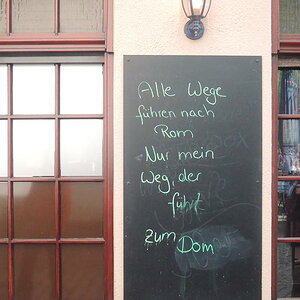 Alle Wege
führen nach
Rom
Nur mein
Weg, der
führt
zum Dom